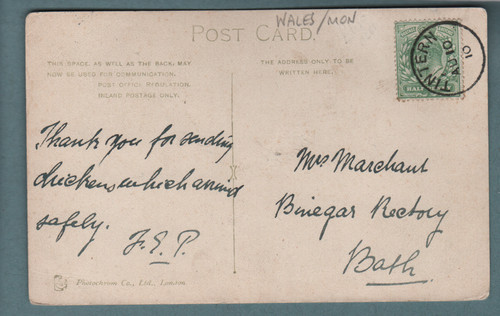 WALES/MON
POST CARD.
THIS SPACE, AS WELL AS THE BACK, MAY
NOW BE USED FOR COMMUNICATION.
POST OFFICE REGULATION.
INLAND POSTAGE ONLY.
THE ADDRESS ONLY TO BE
WRITTEN HERE.
TINTERN
AU 10
10
HAL
Thank you for sending
chickens which arrived
safely.
F.E.P.
Mrs Marchant
Binegar Rectory
Bath.
Photochrom Co., Ltd., London